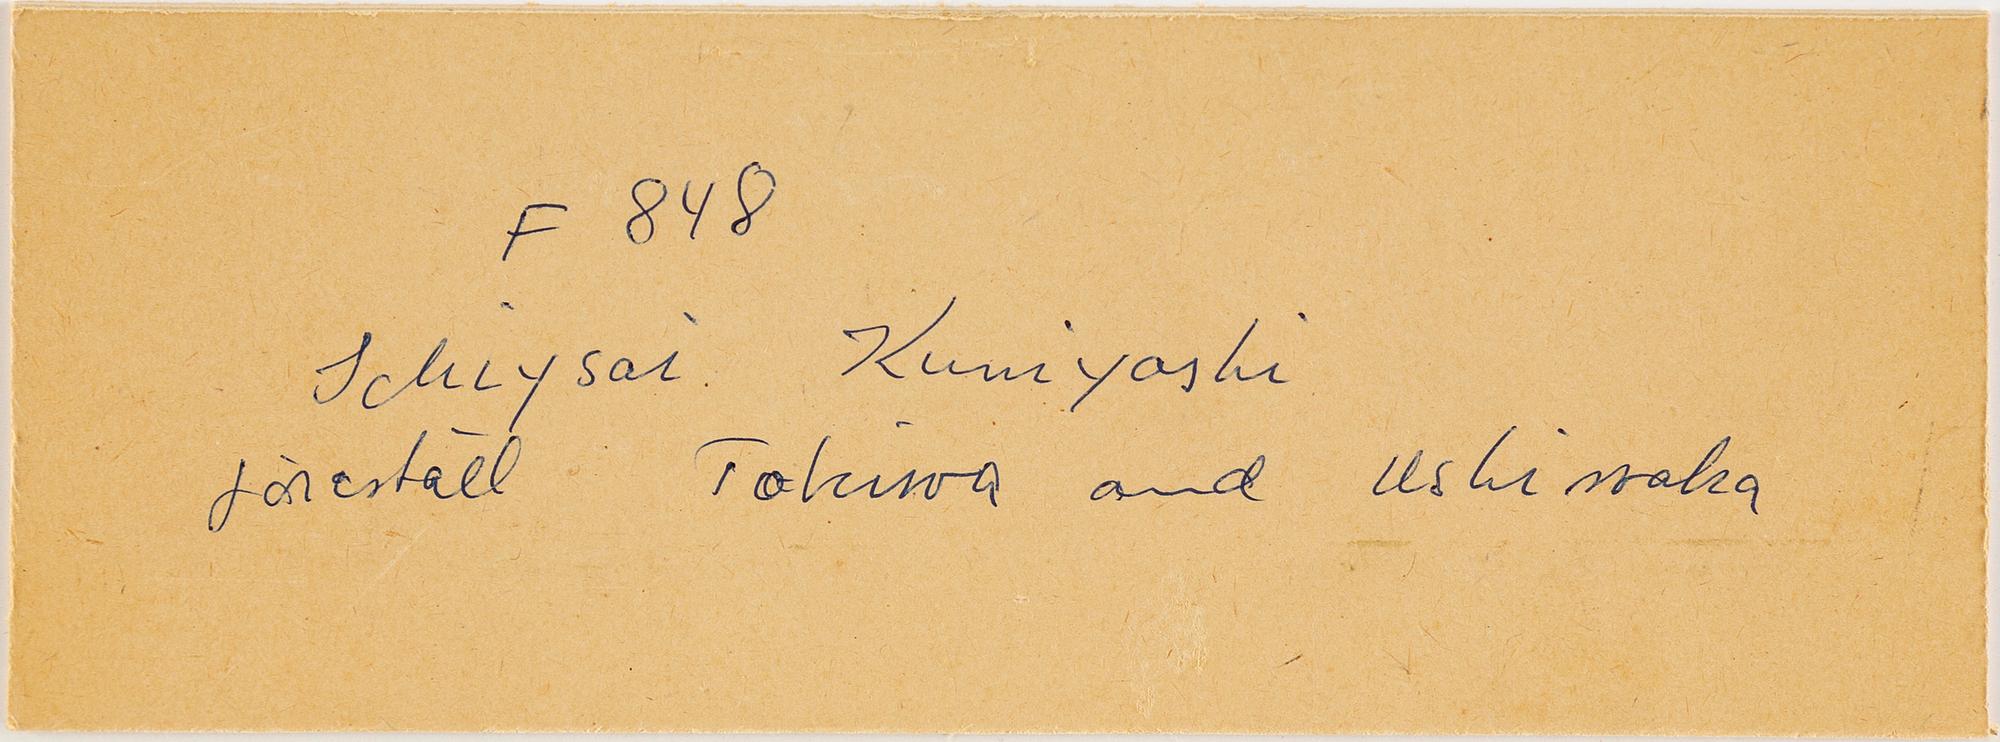 F 848
Ichiysai Kuniyoshi
föreställ Tokiwa and Ushiwaka